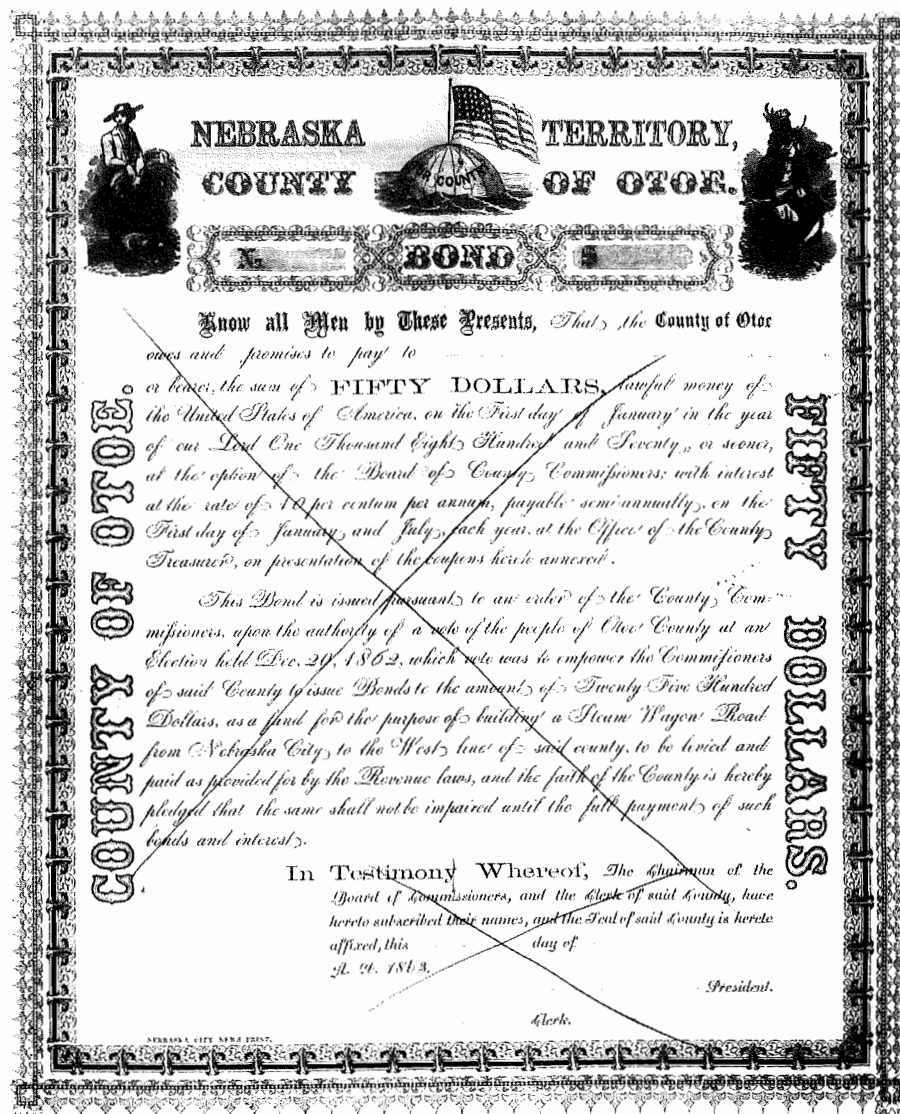 NEBRASKA TERRITORY,
COUNTY OF OTOE.
OUR COUNTRY
No. BOND $
Know all Men by These Presents, That the County of Otoe
owes and promises to pay to
or bearer, the sum of FIFTY DOLLARS, lawful money of
the United States of America, on the First day of January in the year
of our Lord One Thousand Eight Hundred and Seventy, or sooner,
at the option of the Board of County Commissioners; with interest
at the rate of 10 per centum per annum, payable semi-annually, on the
First day of January and July, each year, at the Office of the County
Treasurer, on presentation of the coupons hereto annexed.
This Bond is issued pursuant to an order of the County Com-
missioners, upon the authority of a vote of the people of Otoe County at an
Election held Dec. 20, 1862, which vote was to empower the Commissioners
of said County to issue Bonds to the amount of Twenty Five Hundred
Dollars, as a fund for the purpose of building a Steam Wagon Road
from Nebraska City to the West line of said county, to be levied and
paid as provided for by the Revenue laws, and the faith of the County is hereby
pledged that the same shall not be impaired until the full payment of such
bonds and interest.
In Testimony Whereof, The Chairman of the
Board of Commissioners, and the Clerk of said County, have
hereto subscribed their names, and the Seal of said County is hereto
affixed, this day of
A. D. 1863.
President.
Clerk.
NEBRASKA CITY NEWS PRINT.
COUNTY OF OTOE.
FIFTY DOLLARS.